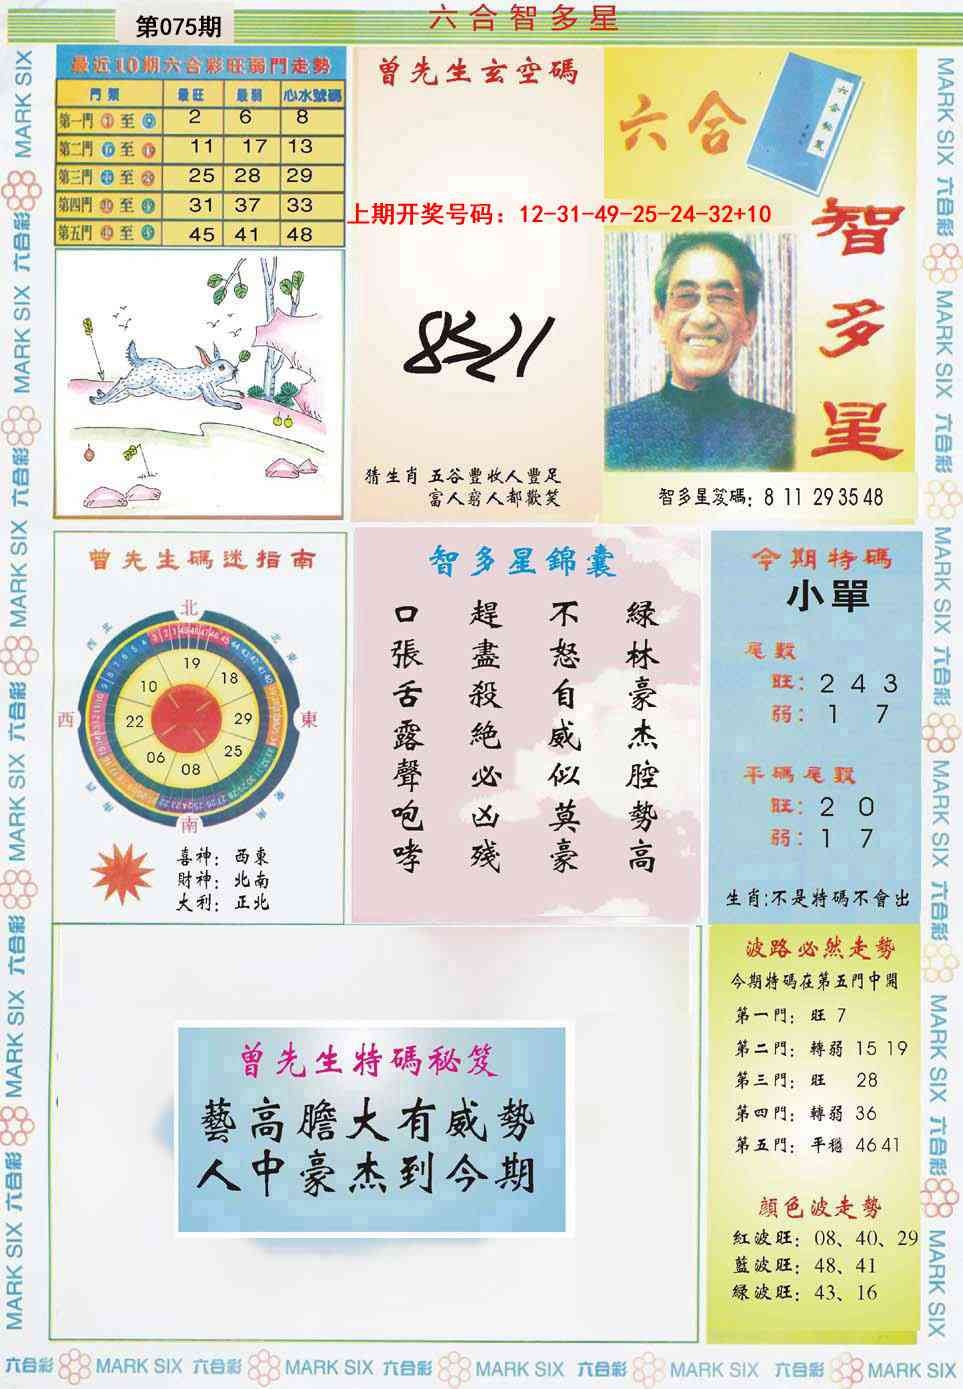 第075期
六合智多星
最近10期六合彩旺弱門走勢
門類 最旺 最弱 心水號碼
第一門 至 2 6 8
第二門 至 11 17 13
第三門 至 25 28 29
第四門 至 31 37 33
第五門 至 45 41 48
曾先生玄空碼
上期开奖号码：12-31-49-25-24-32+10
猜生肖 五谷豐收人豐足
富人窮人都歡笑
六合
智多星
智多星笈碼：8 11 29 35 48
曾先生碼迷指南
北
西
東
南
19
18
29
25
08
06
22
10
喜神：西東
財神：北南
大利：正北
智多星錦囊
綠林豪杰腔勢高
不怒自威似莫豪
趕盡殺絕必凶殘
口張舌露聲咆哮
今期特碼
小單
尾數
旺：2 4 3
弱：1 7
平碼尾數
旺：2 0
弱：1 7
生肖:不是特碼不會出
曾先生特碼秘笈
藝高膽大有威勢
人中豪杰到今期
波路必然走勢
今期特碼在第五門中開
第一門：旺 7
第二門：轉弱 15 19
第三門：旺 28
第四門：轉弱 36
第五門：平穩 46 41
顏色波走勢
紅波旺：08、40、29
藍波旺：48、41
綠波旺：43、16
六合彩 MARK SIX 六合彩 MARK SIX 六合彩 MARK SIX 六合彩 MARK SIX 六合彩 MARK SIX